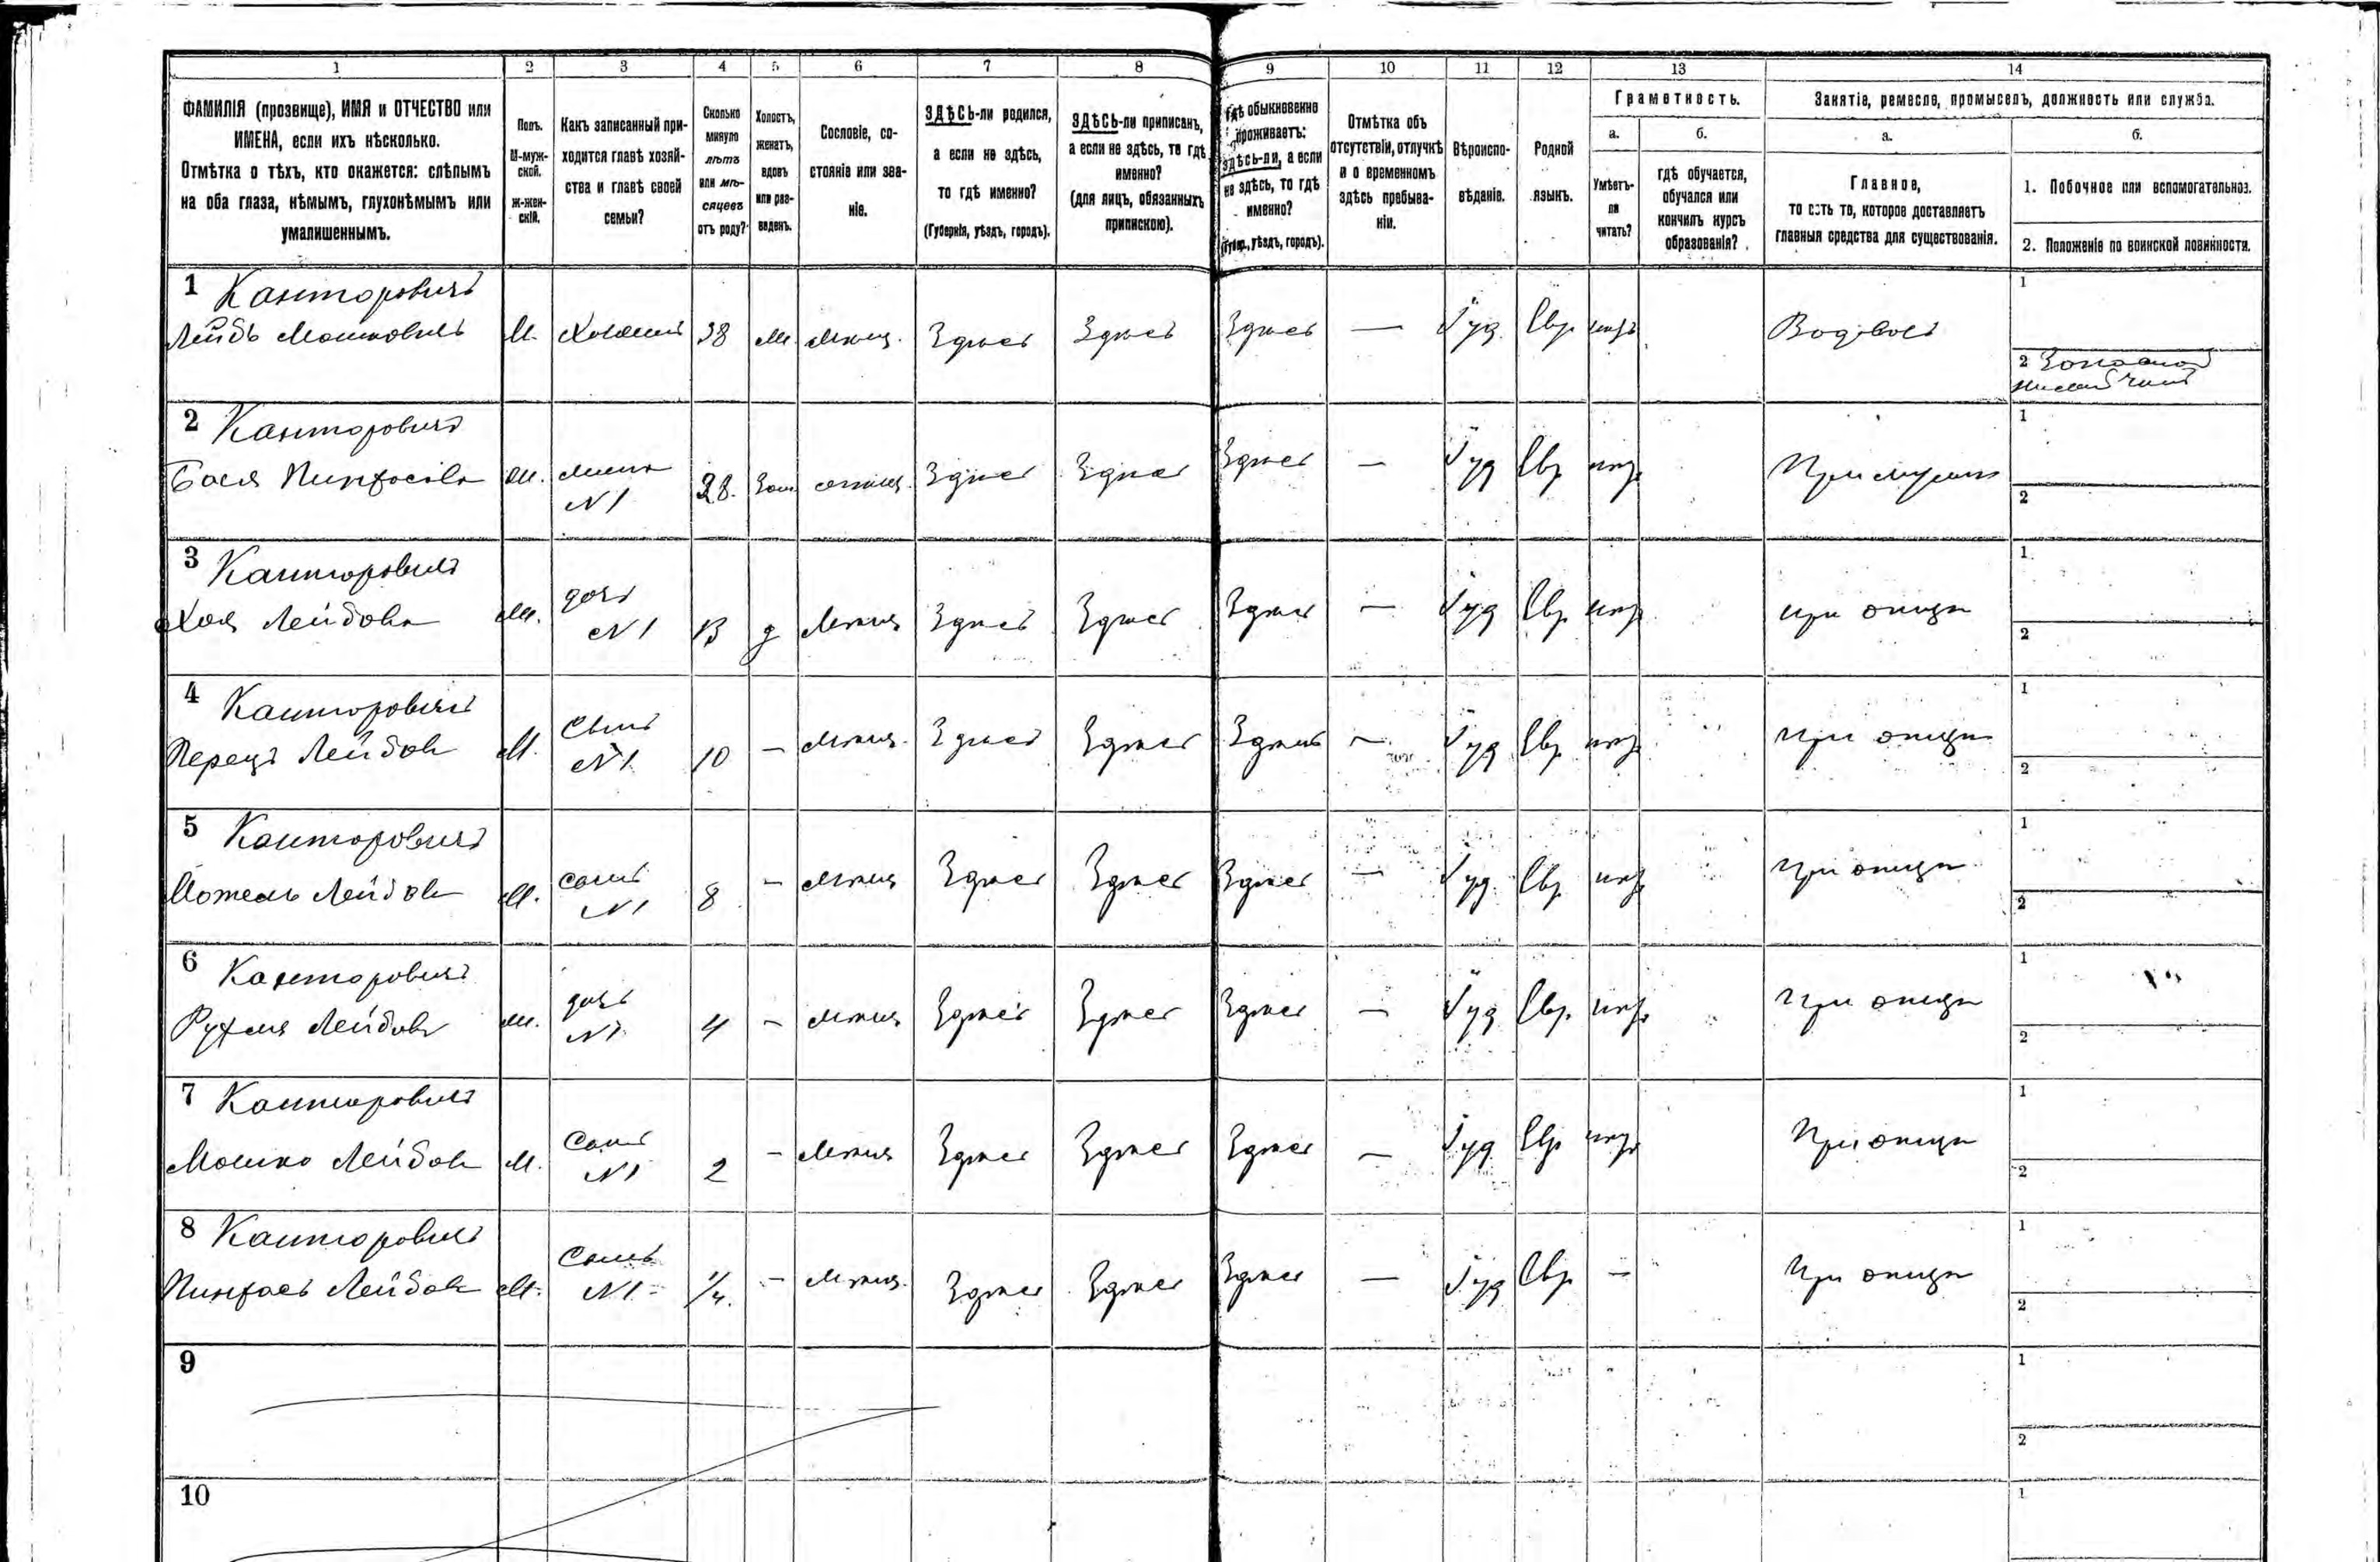 1 2 3 4 5 6 7 8 9 10 11 12 13 14
ФАМИЛІЯ (прозвище), ИМЯ и ОТЧЕСТВО или
ИМЕНА, если ихъ нѣсколько.
Отмѣтка о тѣхъ, кто окажется: слѣпымъ
на оба глаза, нѣмымъ, глухонѣмымъ или
умалишеннымъ.
Полъ.
М-муж-
ской.
Ж-жен-
скій.
Какъ записанный при-
ходится главѣ хозяй-
ства и главѣ своей
семьи?
Сколько
минуло
лѣтъ
или мѣ-
сяцевъ
отъ роду?
Холостъ,
женатъ,
вдовъ
или раз-
веденъ.
Сословіе, со-
стояніе или зва-
ніе.
ЗДѢСЬ-ли родился,
а если не здѣсь,
то гдѣ именно?
(Губернія, уѣздъ, городъ).
ЗДѢСЬ-ли приписанъ,
а если не здѣсь, то гдѣ
именно?
(для лицъ, обязанныхъ
припискою).
Гдѣ обыкновенно
проживаетъ:
здѣсь-ли, а если
не здѣсь, то гдѣ
именно?
(Губер., уѣздъ, городъ).
Отмѣтка объ
отсутствіи, отлучкѣ
и о временномъ
здѣсь пребыва-
ніи.
Вѣроиспо-
вѣданіе.
Родной
языкъ.
Грамотность.
а. б.
Умѣетъ-
ли
читать?
гдѣ обучается,
обучался или
кончилъ курсъ
образованія?
Занятіе, ремесло, промыселъ, должность или служба.
а. б.
Главное,
то есть то, которое доставляетъ
главныя средства для существованія.
1. Побочное или вспомогательное.
2. Положеніе по воинской повинности.
1 Канторовичъ 1
Лейбъ Мошковичъ М. Хозяинъ 38 мѣщ. Здѣсь Здѣсь Здѣсь — Іуд. Евр. Водовозъ
2
2 Канторовичъ 1
Бася Пинхасова жена №1 28. Зам Здѣсь Здѣсь Здѣсь — Іуд Евр При мужѣ
2
3 Канторовичъ 1
Хая Лейбова дочь №1 13 д Мѣщ Здѣсь Здѣсь Здѣсь — Іуд Евр при отцѣ
2
4 Канторовичъ 1
Перецъ Лейбов М. Сынъ №1 10 — Мѣщ. Здѣсь Здѣсь Здѣсь — Іуд Евр при отцѣ
2
5 Канторовичъ 1
Мотель Лейбов М. сынъ №1 8 — Мѣщ Здѣсь Здѣсь Здѣсь — Іуд. Евр при отцѣ
2
6 Канторовичъ 1
Рухля Лейбова дочь №1 4 — Мѣщ Здѣсь Здѣсь Здѣсь — Іуд Евр. при отцѣ
2
7 Канторовичъ 1
Мошко Лейбов М. Сынъ №1 2 — Мѣщ Здѣсь Здѣсь Здѣсь — Іуд Евр При отцѣ
2
8 Канторовичъ 1
Пинхасъ Лейбов М. Сынъ №1 1/4. — Мѣщ. Здѣсь Здѣсь Здѣсь — Іуд Евр. — При отцѣ
2
9 1
2
10 1